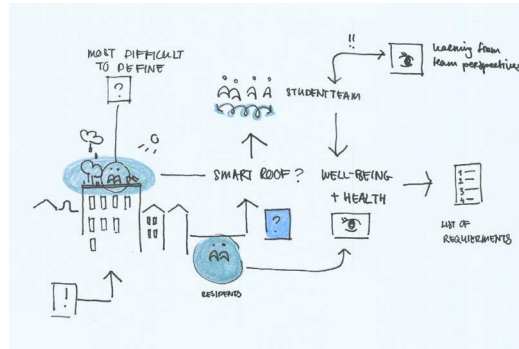 MOST DIFFICULT
TO DEFINE
?
!!
learning from
team perspectives
STUDENT TEAM
SMART ROOF?
WELL-BEING
+ HEALTH
?
1
2
3
4
LIST OF
REQUIREMENTS
RESIDENTS
!